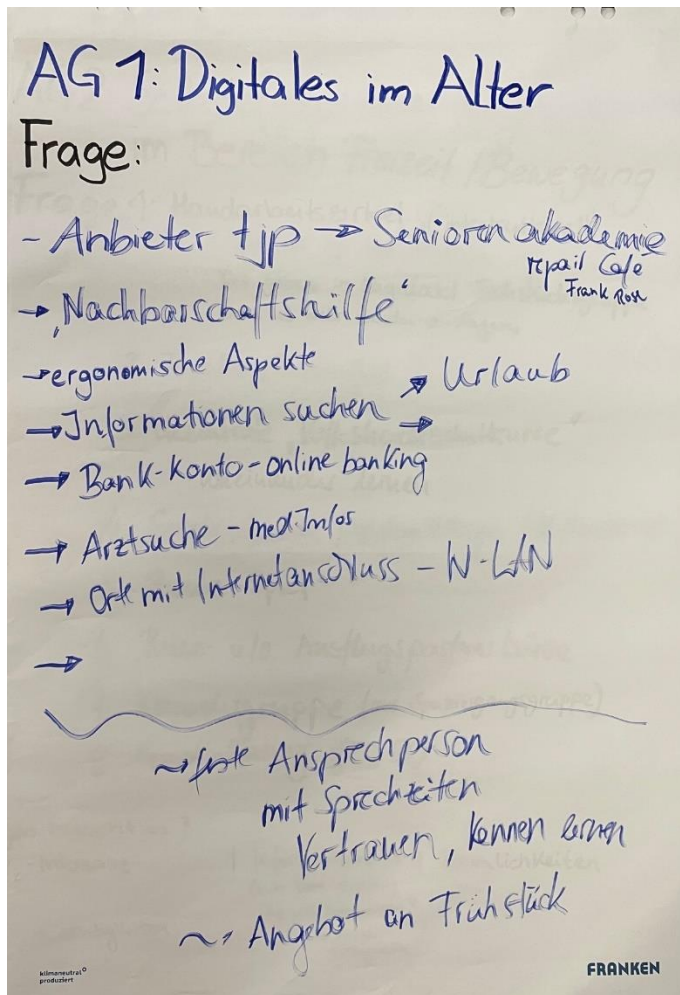 AG 1: Digitales im Alter
Frage:
- Anbieter tjp → Seniorenakademie
repair Cafe
Frank Rosn
→ „Nachbarschaftshilfe“
→ ergonomische Aspekte
→ Informationen suchen → Urlaub
→
→ Bank-Konto-online banking
→ Arztsuche - med. Infos
→ Orte mit Internetanschluss - W-LAN
→
~> feste Ansprechperson
mit Sprechzeiten
Vertrauen, kennen lernen
~> Angebot an Frühstück
klimaneutral
produziert
FRANKEN